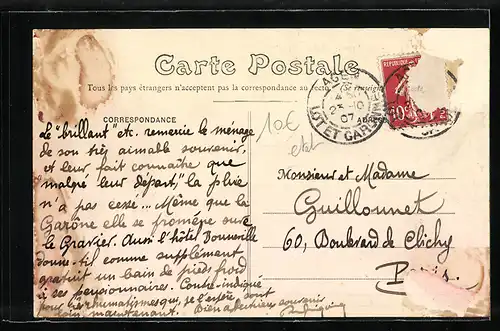 Carte Postale
Tous les pays étrangers n'acceptent pas la correspondance au recto
CORRESPONDANCE
10€
état
REPUBLIQUE
10
AGEN
2-10
07
LOT ET GARONNE
Le "brillant" etc. remercie le ménage
de son très aimable souvenir
et leur fait connaître que
malgré leur départ, la pluie
n'a pas cessé... Même que la
Garône elle se promène sur
le Gravier. Aussi l'hôtel Bonneville
donne-t-il comme supplément
gratuit un bain de pieds froid
à ses pensionnaires. Contre-indiqué
pour les rhumatismes qui, je l'espère, sont
loin maintenant. Bien affectueux souvenir
Monsieur et Madame
Guillonnet
60, Boulevard de Clichy
Paris